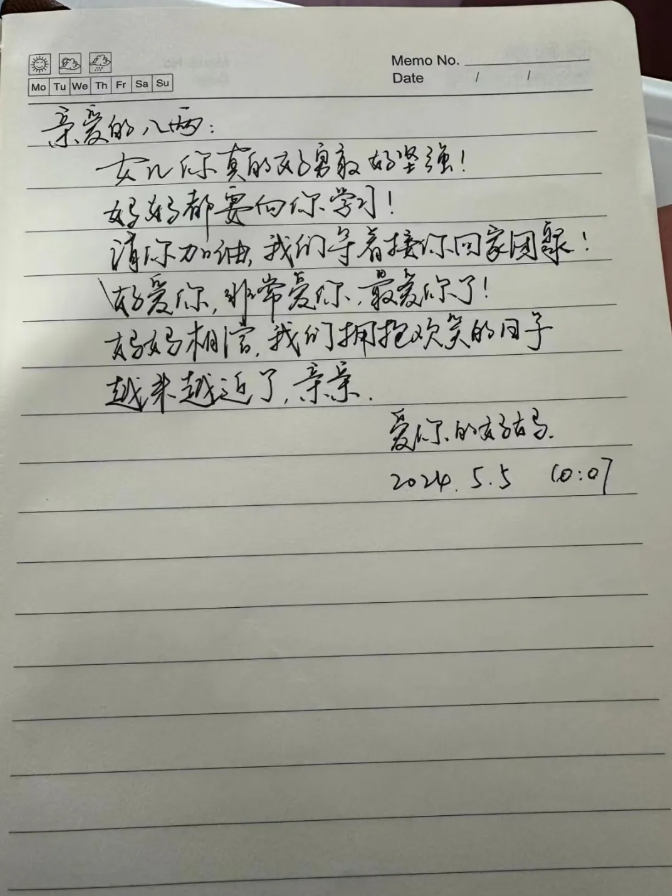 Memo No.
Mo Tu We Th Fr Sa Su
Date / /
亲爱的八两：
女儿你真的好勇敢好坚强！
妈妈都要向你学习！
请你加油，我们等着接你回家团聚！
好爱你，非常爱你，最爱你了！
妈妈相信，我们拥抱欢笑的日子
越来越近了，亲亲.
爱你的妈妈.
2024.5.5 10:07